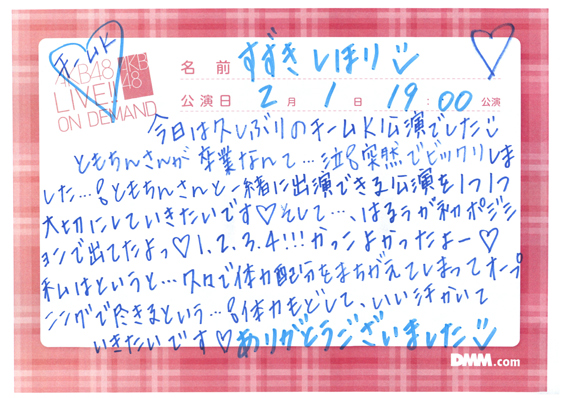 チームK
AKB48
LIVE!!
ON DEMAND
AKB
48
名前 すずきしほり
公演日 2月 1日 19:00公演
今日は久しぶりのチームK公演でした
ともちんさんが卒業なんて…泣 突然でビックリしま
した… ともちんさんと一緒に出演できる公演を1つ1つ
大切にしていきたいです♡そして…、はるうが初ポジシ
ョンで出てたよっ♡1.2.3.4!!!かっこよかったよー♡
私はというと…久々で体力配分をまちがえてしまってオープ
ニングで尽きるという… 体力もどして、いい汗かいて
いきたいです♡ありがとうございました
DMM.com